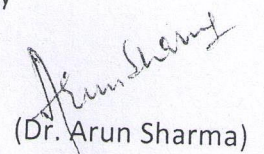 Arun Sharma
(Dr. Arun Sharma)